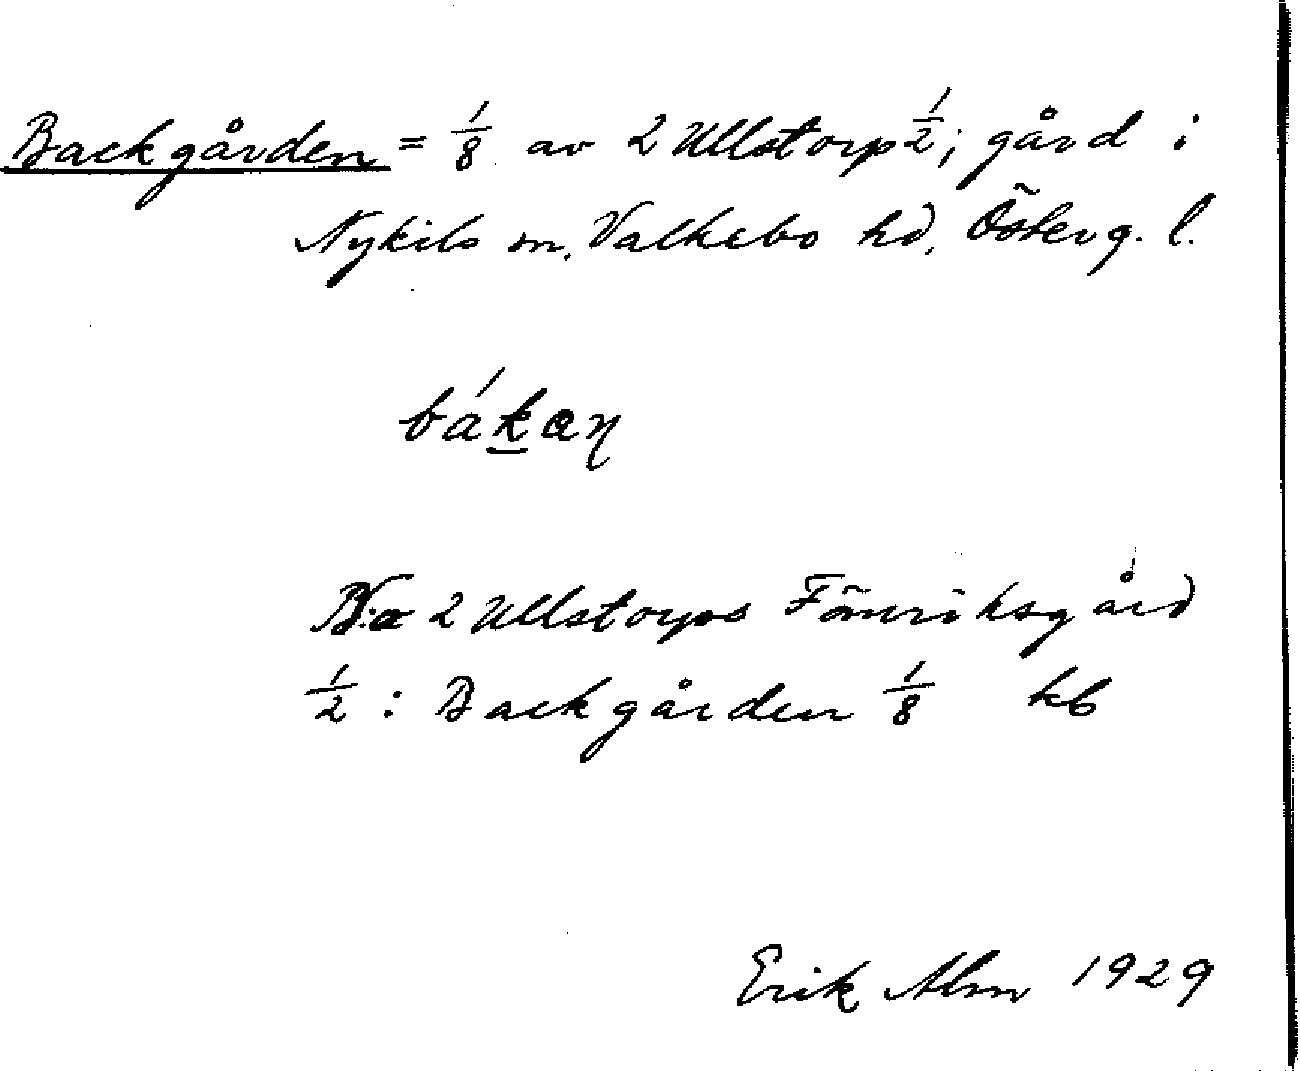 Backgården = 1/8 av 2 Ullstorp 1/2; gård i
Nykils sn, Valkebo hd, Österg. l.
bákan
2 Ullstorps Fänriksgård
1/2 : Backgården 1/8 kb
Erik Alm 1929